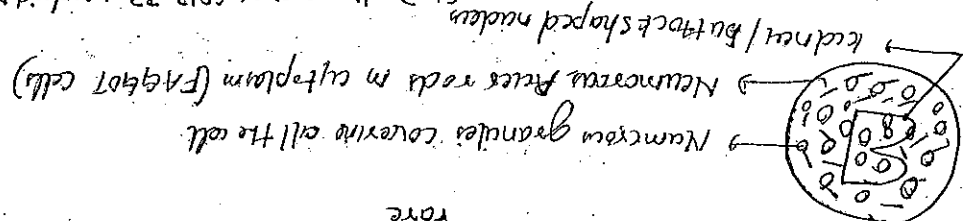 rare
→ Numerous granules covering all the cell
→ Neumorous Auer rods in cytoplasm (FAGGOT cells)
→ kidney/Buttock shaped nucleus